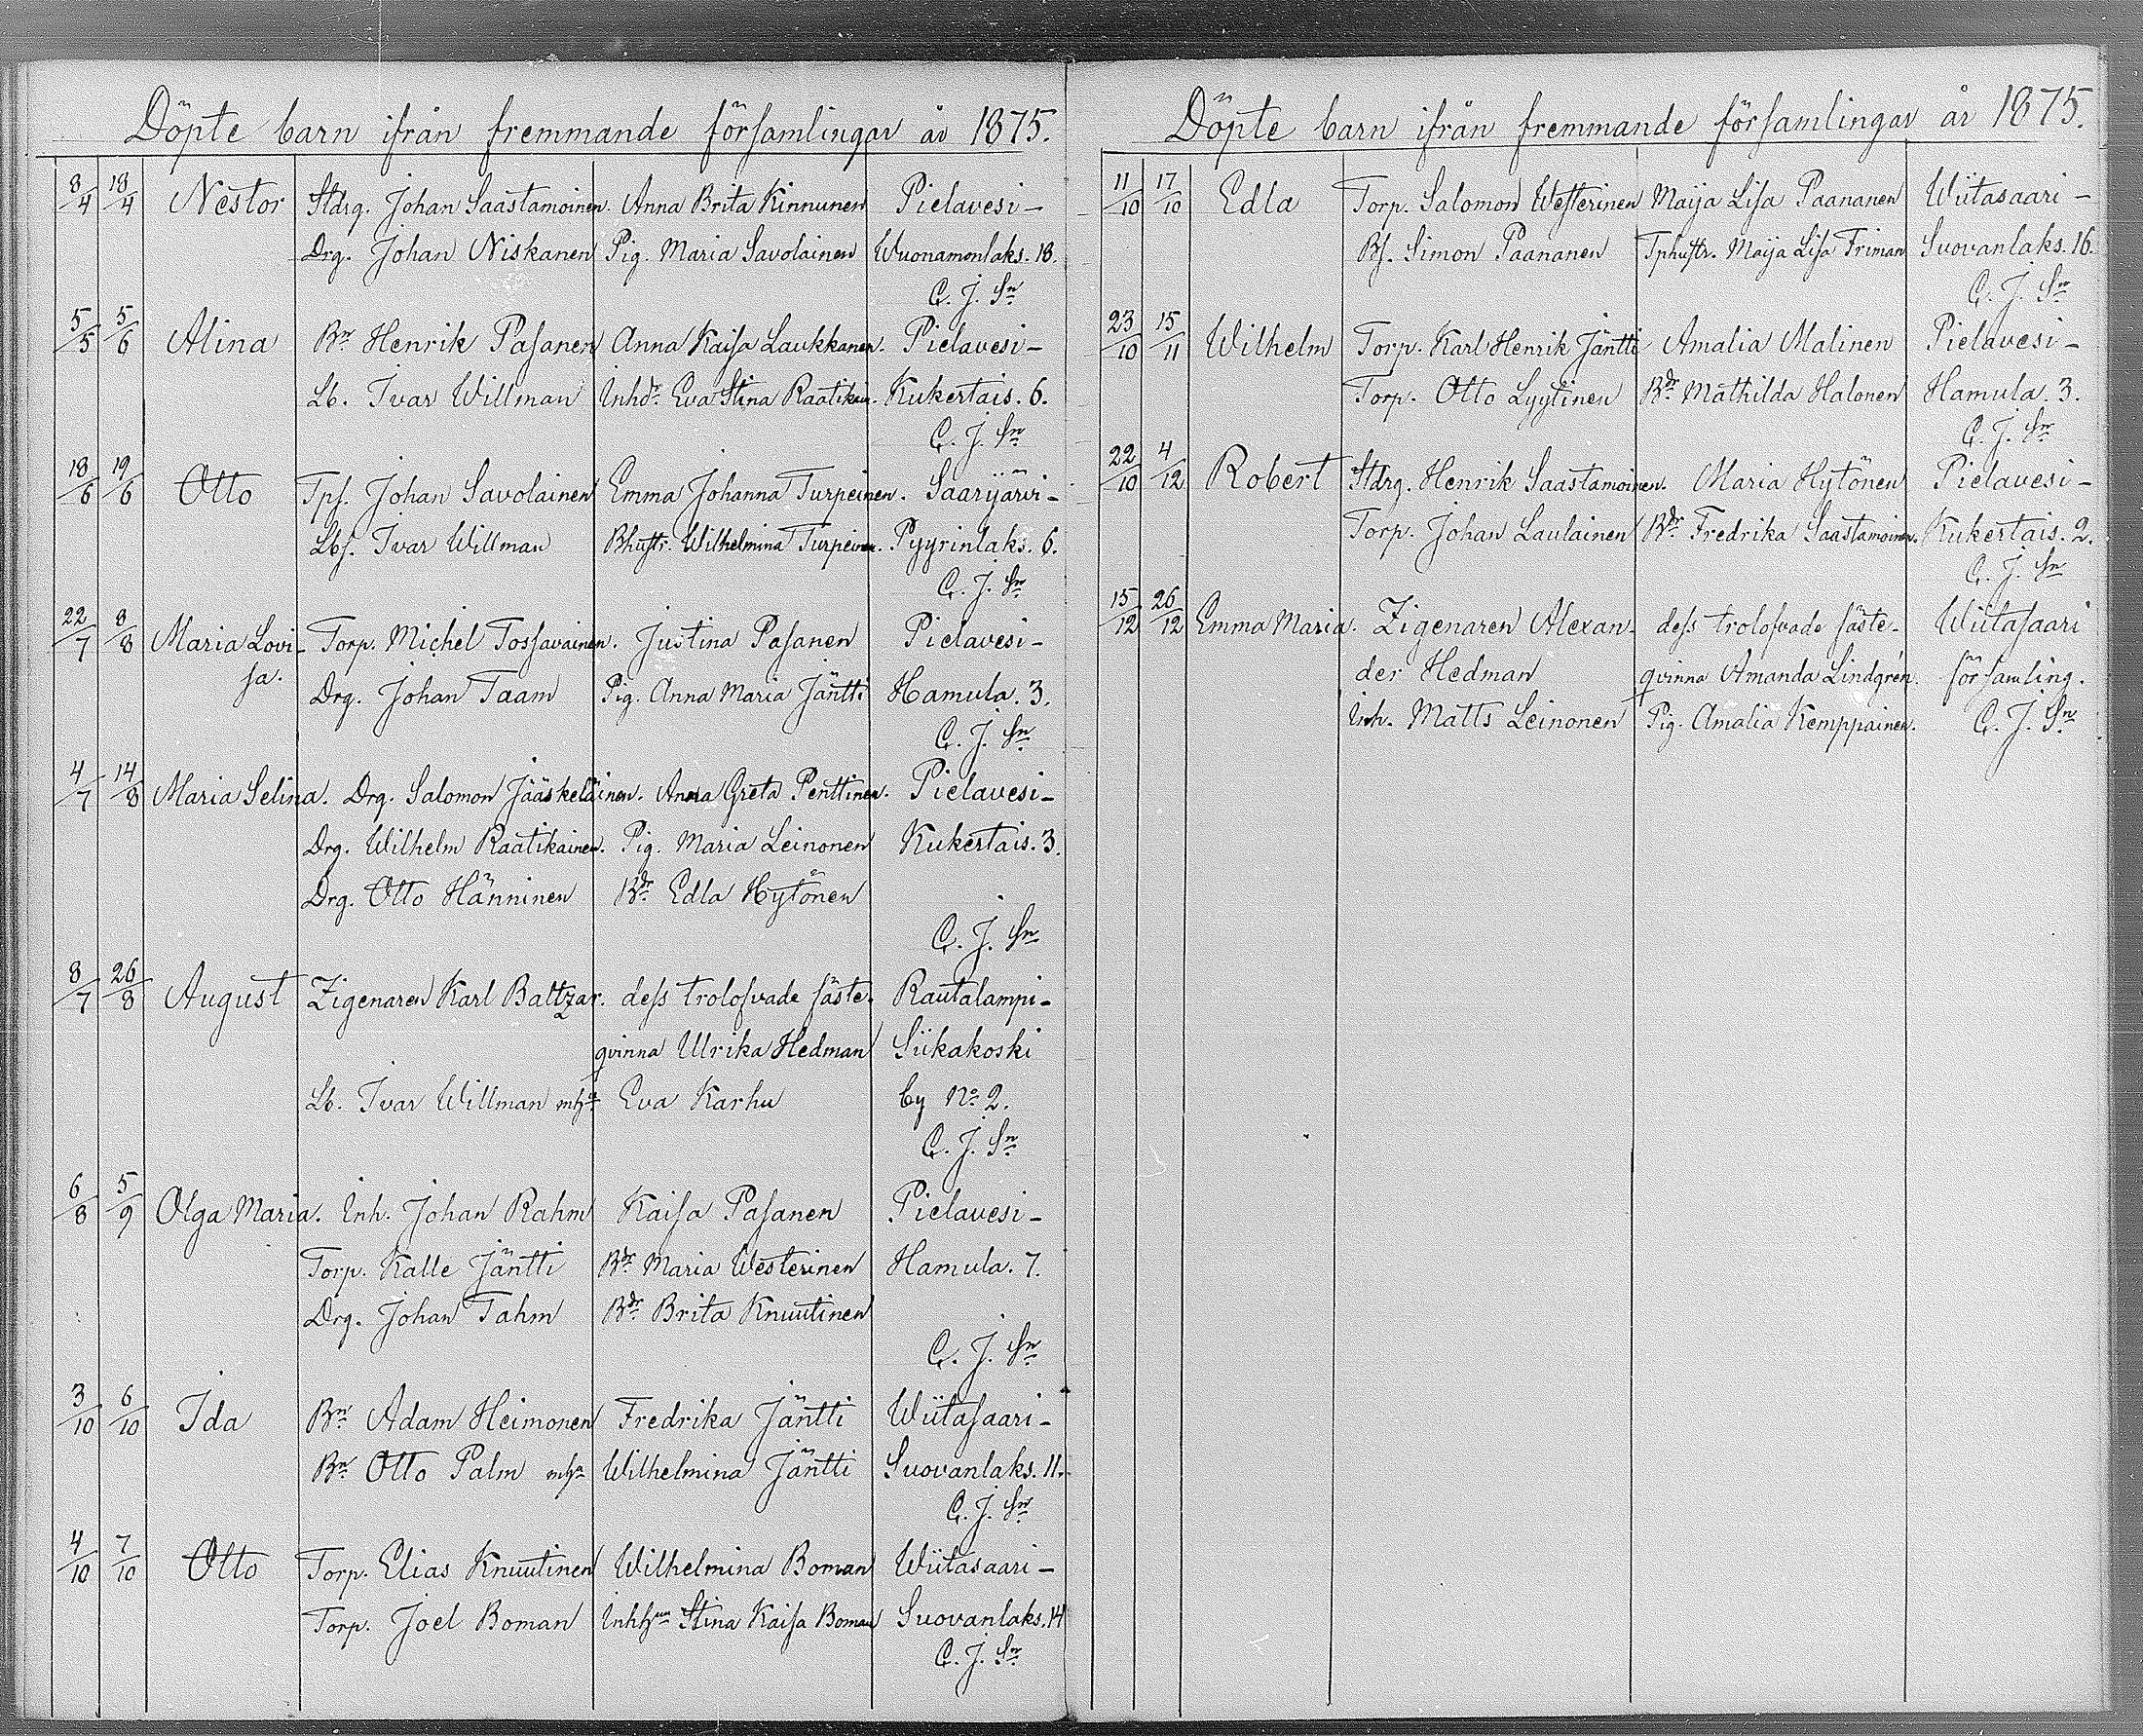 Döpte barn ifrån fremmande församlingar år 1875.
8/4 18/4 Nestor Stdrg. Johan Saastamoinen. Anna Brita Kinnunen Pielavesi-
Drg. Johan Niskanen Pig. Maria Savolainen Wuonamonlaks. 18.
C. J. Sn
5/5 5/6 Alina Bn Henrik Pasanen Anna Kaisa Laukkanen. Pielavesi-
Lb. Ivar Willman Inhdr Eva Stina Raatikain. Kukertais. 6.
C. J. Sn
18/6 19/6 Otto Tps. Johan Savolainen Emma Johanna Turpeinen. Saarijärvi-
Lbs. Ivar Willman Bhustr. Wilhelmina Turpeinen. Pyyrinlaks. 6.
C. J. Sn
22/7 8/8 Maria Lovi- Torp. Michel Tossavainen. Justina Pasanen Pielavesi-
sa. Drg. Johan Taam Pig. Anna Maria Jäntti Hamula. 3.
C. J. Sn
4/7 14/8 Maria Selina. Drg. Salomon Jääskeläinen. Anna Greta Penttinen. Pielavesi-
Drg. Wilhelm Raatikainen. Pig. Maria Leinonen Kukertais. 3.
Drg. Otto Hänninen Bdr Edla Hytönen
C. J. Sn
8/7 26/8 August Zigenaren Karl Baltzar. dess trolofvade fäste- Rautalampi-
qvinna Ulrika Hedman Siikakoski
Lb. Ivar Willman mha Eva Karhu by No 2.
C. J. Sn
6/8 5/9 Olga Maria. Inh. Johan Rahm Kaisa Pasanen Pielavesi-
Torp. Kalle Jäntti Bdr Maria Westerinen Hamula. 7.
Drg. Johan Tahm Bdr Brita Knuutinen
C. J. Sn
3/10 6/10 Ida Bn Adam Heimonen Fredrika Jäntti Wiitasaari-
Bn Otto Palm mha Wilhelmina Jäntti Suovanlaks. 11.
C. J. Sn
4/10 7/10 Otto Torp. Elias Knuutinen Wilhelmina Boman Wiitasaari-
Torp. Joel Boman Stina Kaisa Boman Suovanlaks. 14
C. J. Sn
Döpte barn ifrån fremmande församlingar år 1875.
11/10 17/10 Edla Torp. Salomon Westerinen Maija Lisa Paananen Wiitasaari-
Bs. Simon Paananen Tphustr. Maija Lisa Friman Suovanlaks. 16.
C. J. Sn
23/10 15/11 Wilhelm Torp. Karl Henrik Jäntti Amalia Malinen Pielavesi-
Torp. Otto Lyytinen Bdr Mathilda Halonen Hamula. 3.
C. J. Sn
22/10 4/12 Robert Stdrg. Henrik Saastamoinen. Maria Hytönen Pielavesi-
Torp. Johan Laulainen Bdr Fredrika Saastamoinen. Kukertais. 2.
C. J. Sn
15/12 26/12 Emma Maria. Zigenaren Alexan- dess trolofvade fäste- Wiitasaari
der Hedman qvinna Amanda Lindgrén. församling.
Inh. Matts Leinonen Pig. Amalia Kemppainen. C. J. Sn